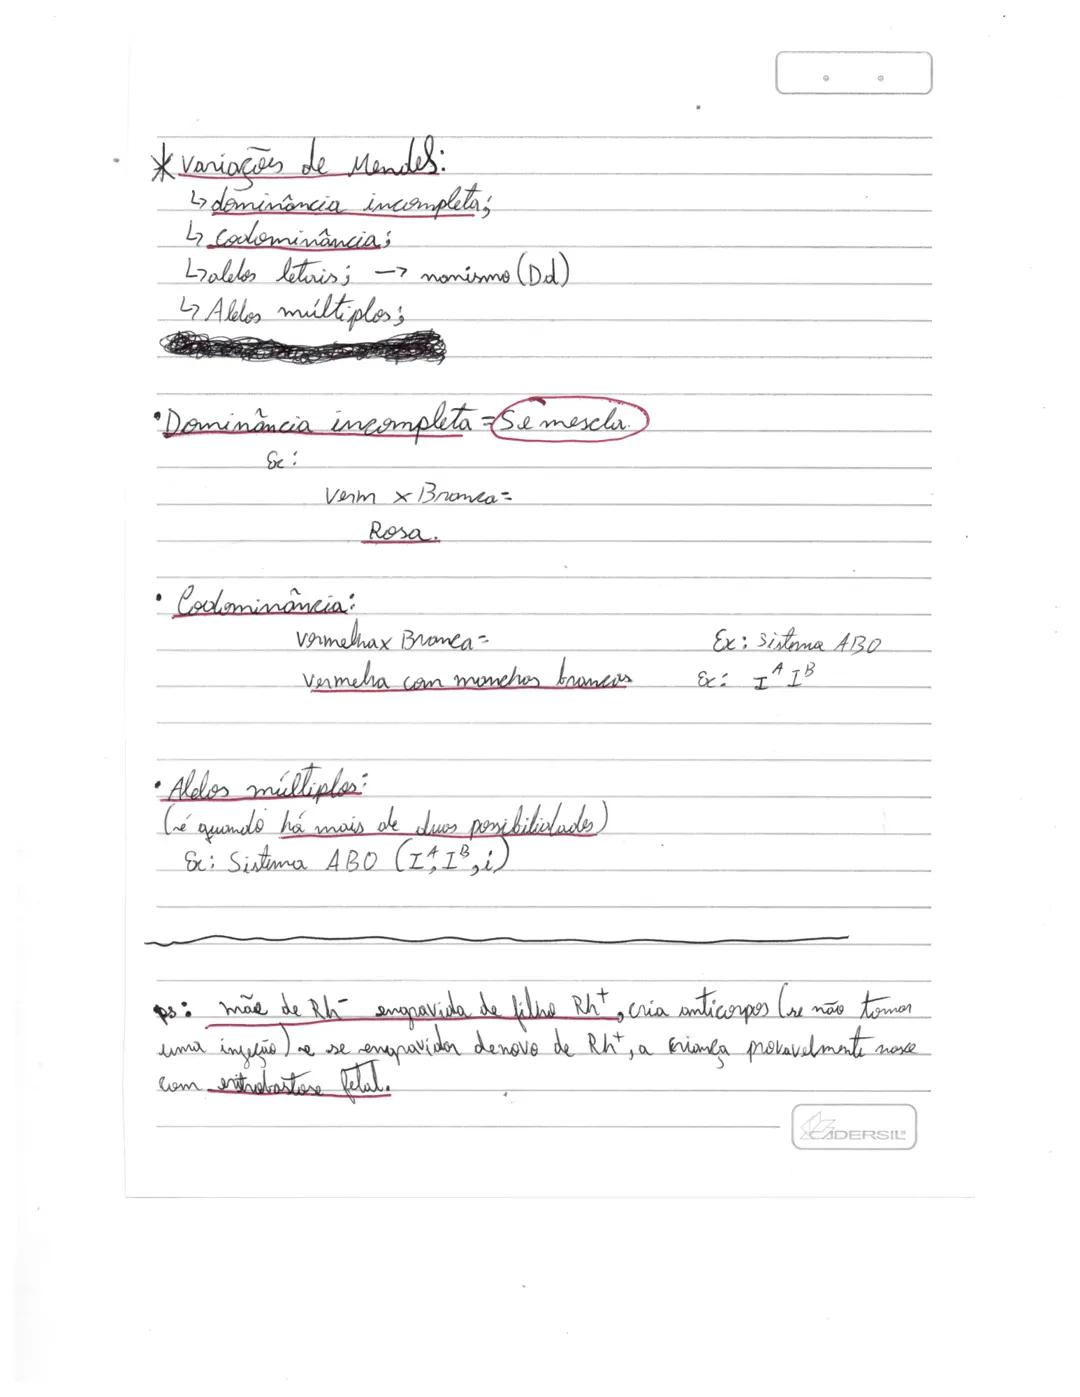 * Variações de Mendel:
↳ dominância incompleta;
↳ Codominância;
↳ alelos letais; → nanismo (Dd)
↳ Alelos múltiplos;
• Dominância incompleta = Se mescla.
Ex:
Verm x Branca =
Rosa.
• Codominância:
vermelha x Branca = Ex: Sistema ABO
vermelha com manchas brancas Ex: Iᴬ Iᴮ
• Alelos múltiplos:
(é quando há mais de duas possibilidades)
Ex: Sistema ABO (Iᴬ, Iᴮ, i)
ps: mãe de Rh⁻ engravida de filho Rh⁺, cria anticorpos (se não tomar
uma injeção) e se engravidar denovo de Rh⁺, a criança provavelmente nasce
com fetal.
CADERSIL